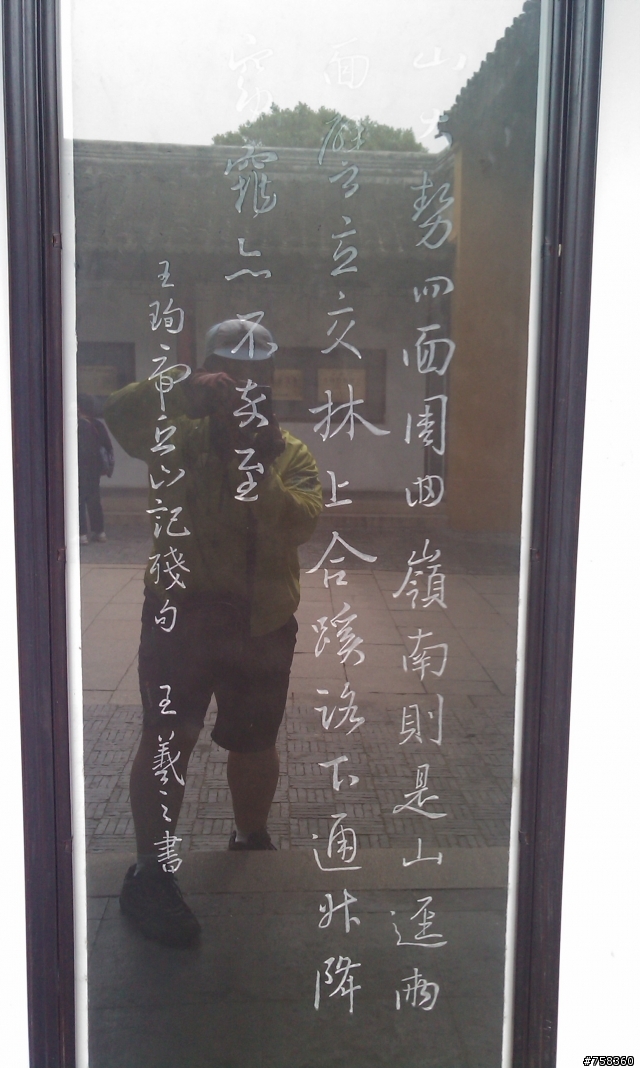 山大勢四面周回嶺南則是山逕兩
面壁立交林上合蹊路下通升降
窈窕亦不卒至
王珣虎丘山記殘句 王羲之書
#758360